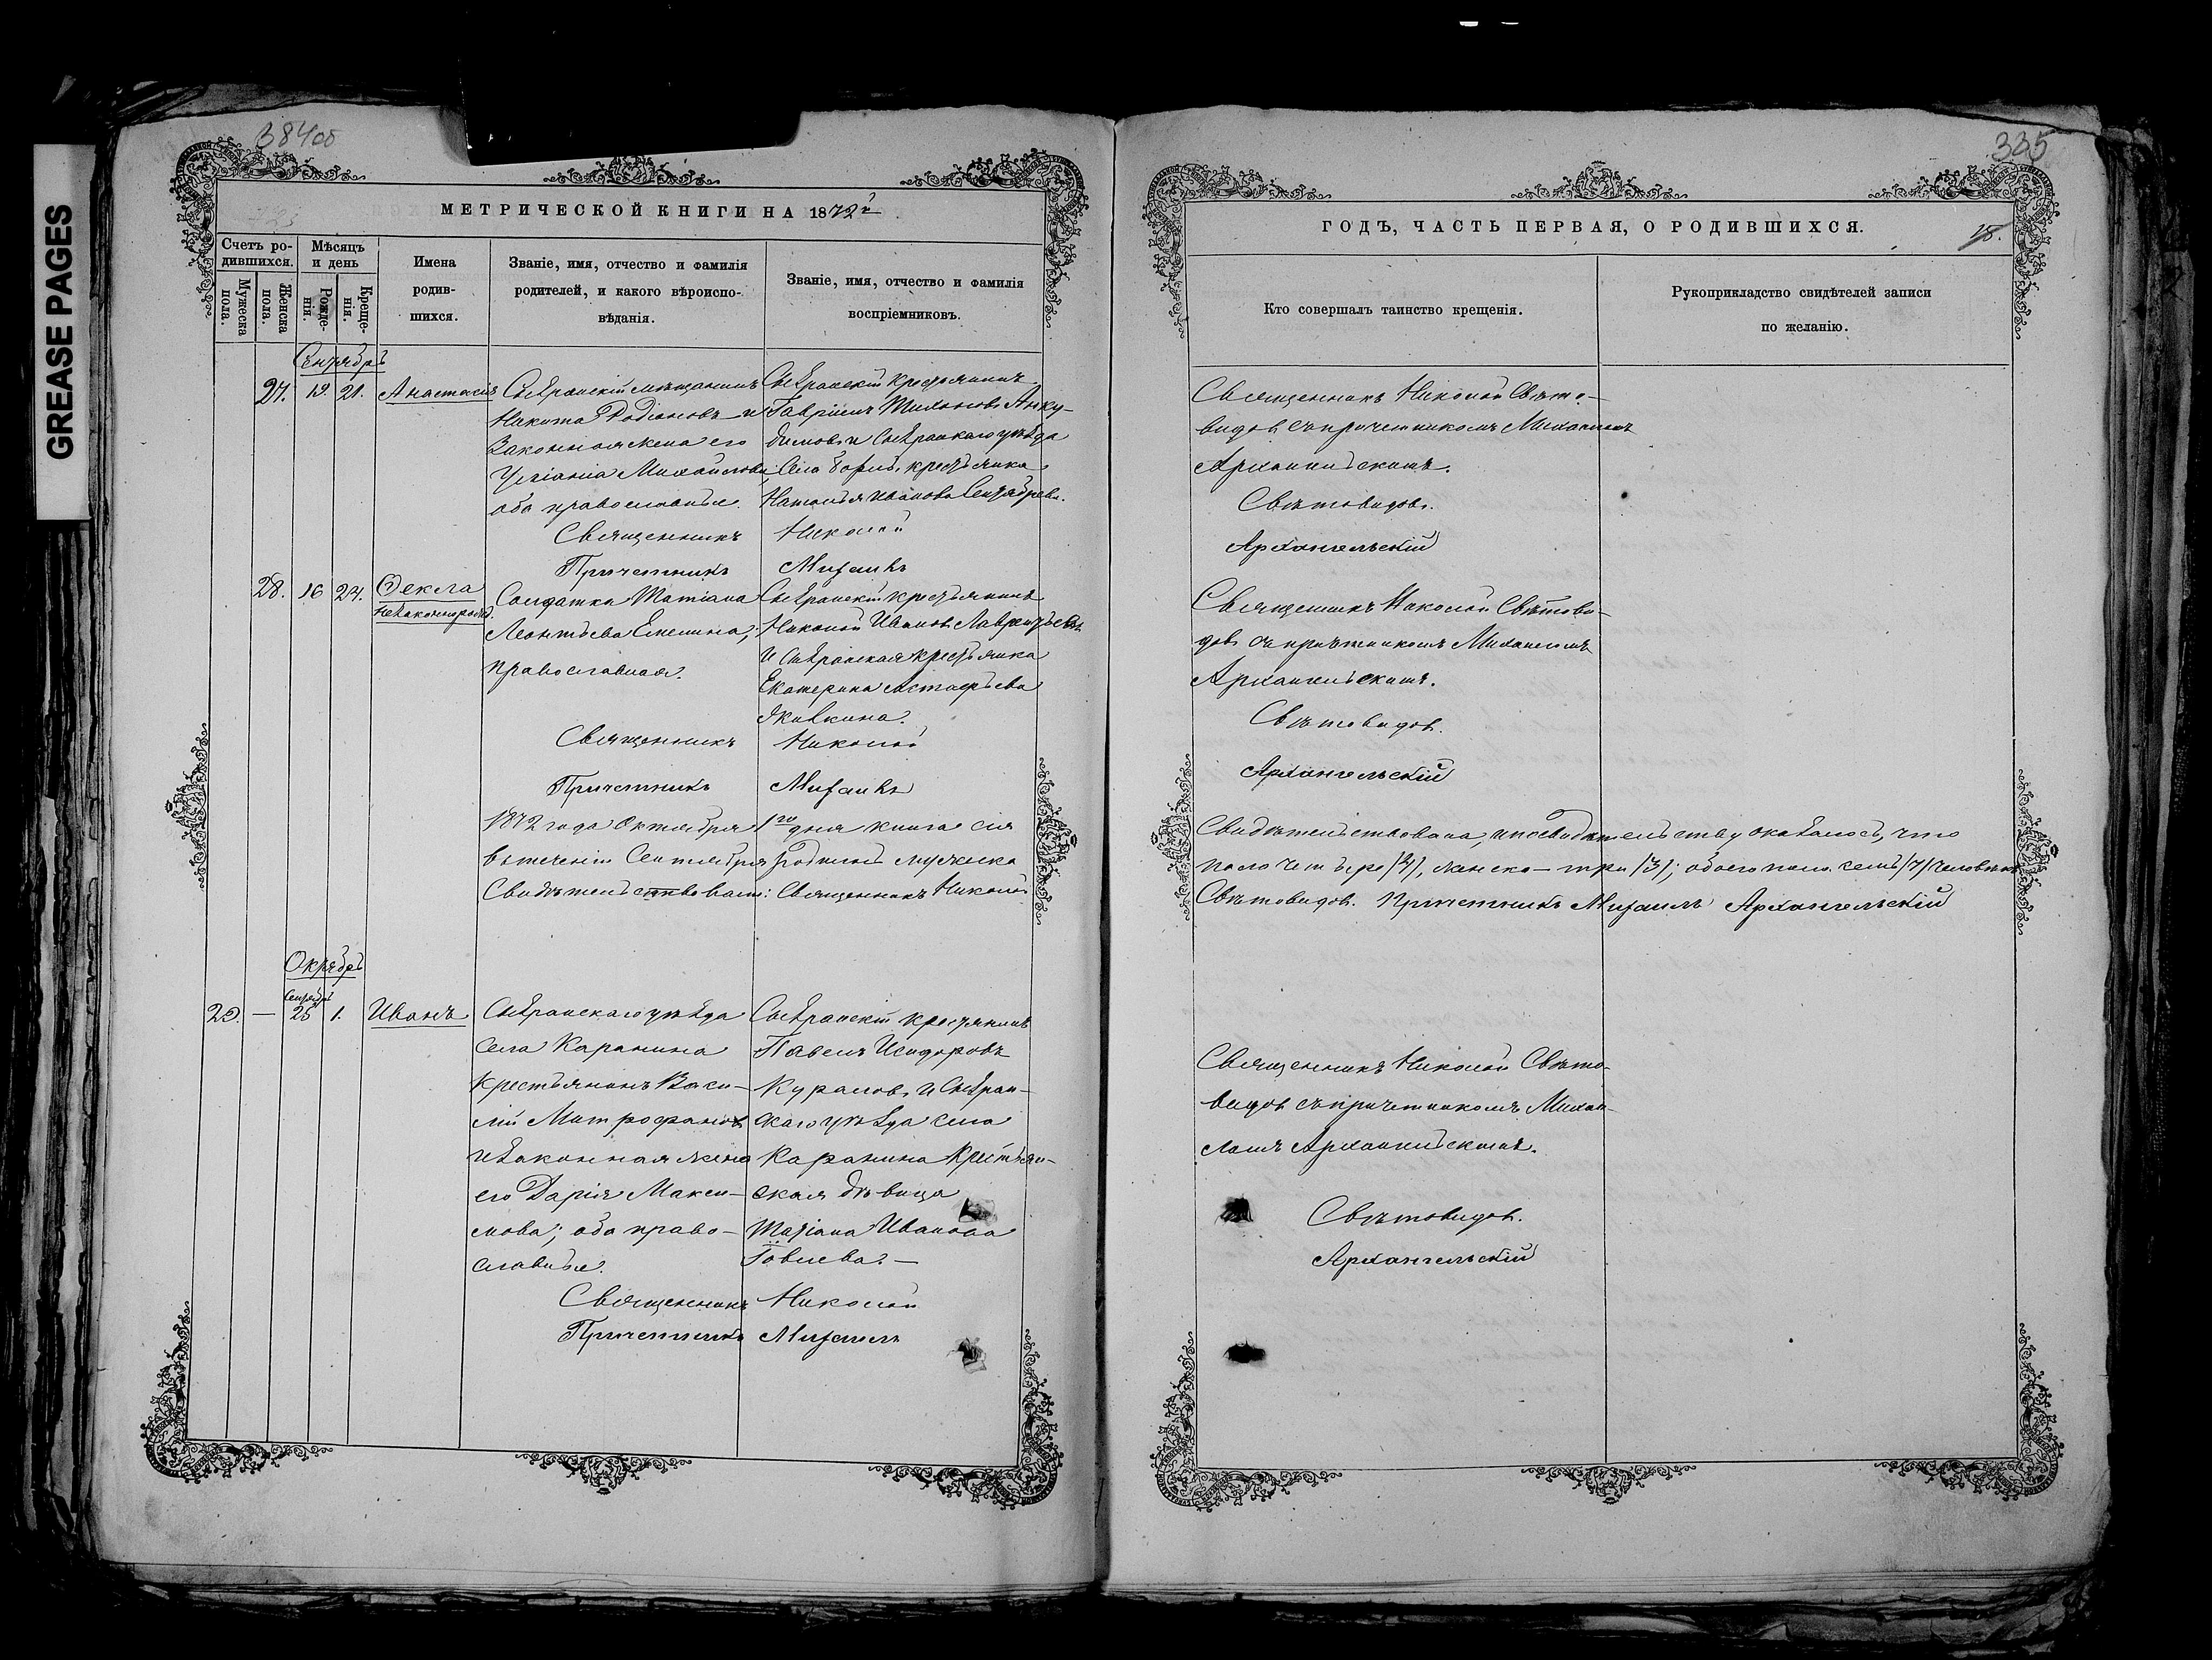 GREASE PAGES
384об
МЕТРИЧЕСКОЙ КНИГИ НА 1872й
Счетъ ро-
дившихся.
Мужеска
пола.
Женска
пола.
Мѣсяцъ
и день
Рожде-
нія.
Креще-
нія.
Имена
родив-
шихся.
Званіе, имя, отчество и фамилія
родителей, и какого вѣроиспо-
вѣданія.
Званіе, имя, отчество и фамилія
воспріемниковъ.
Сентябрь
27. 19. 21. Анастасія
Сызранскій мѣщанинъ
Никита Родіоновъ и
законная жена его
Михайлова,
оба православные.
Священникъ
Причетникъ
Сызранскій крестьянинъ
Гавріилъ Тихоновъ Анку-
димовъ и Сызранскаго уѣзда
села крестьянка
Наталья Иванова
Николай
Михаилъ
28. 16 24. Ѳекла
незаконнорожд.
Солдатка Татіана
Леонтьева Емелина,
православная.
Священникъ
Причетникъ
Сызранскій крестьянинъ
Николай Ивановъ Лаврентьевъ
и Сызранская крестьянка
Екатерина Астафьева
Яковкина.
Николай
Михаилъ
1872 года Октября 1го дня книга сія
въ теченіи Сентября родилось мужеска
Свидѣтельствовали: Священникъ Николай
Октябрь
Сентябрь
29. — 25 1. Иванъ
Сызранскаго уѣзда
села Каранина
крестьянинъ Васи-
лій Митрофановъ
и законная жена
его Дарія Макси-
мова; оба право-
славные.
Священникъ
Причетникъ
Сызранскій крестьянинъ
Павелъ Исидоровъ
Курановъ и Сызран-
скаго уѣзда села
Каранина крестьян-
ская дѣвица
Татіана Иванова
Іовлева. —
Николай
Михаилъ
335
ГОДЪ, ЧАСТЬ ПЕРВАЯ, О РОДИВШИХСЯ.
18.
Кто совершалъ таинство крещенія.
Рукоприкладство свидѣтелей записи
по желанію.
Священникъ Николай Свѣто-
видовъ съ причетникомъ Михаиломъ
Архангельскимъ.
Свѣтовидовъ.
Архангельскій
Священникъ Николай Свѣтови-
довъ съ причетникомъ Михаиломъ
Архангельскимъ.
Свѣтовидовъ.
Архангельскій
Свидѣтельствована, и по свидѣтельству оказалось, что
пола четыре /4/, женска — три /3/; обоего пола семь /7/ человѣкъ
Свѣтовидовъ. Причетникъ Михаилъ Архангельскій
Священникъ Николай Свѣто-
видовъ съ причетникомъ Миха-
иломъ Архангельскимъ.
Свѣтовидовъ.
Архангельскій